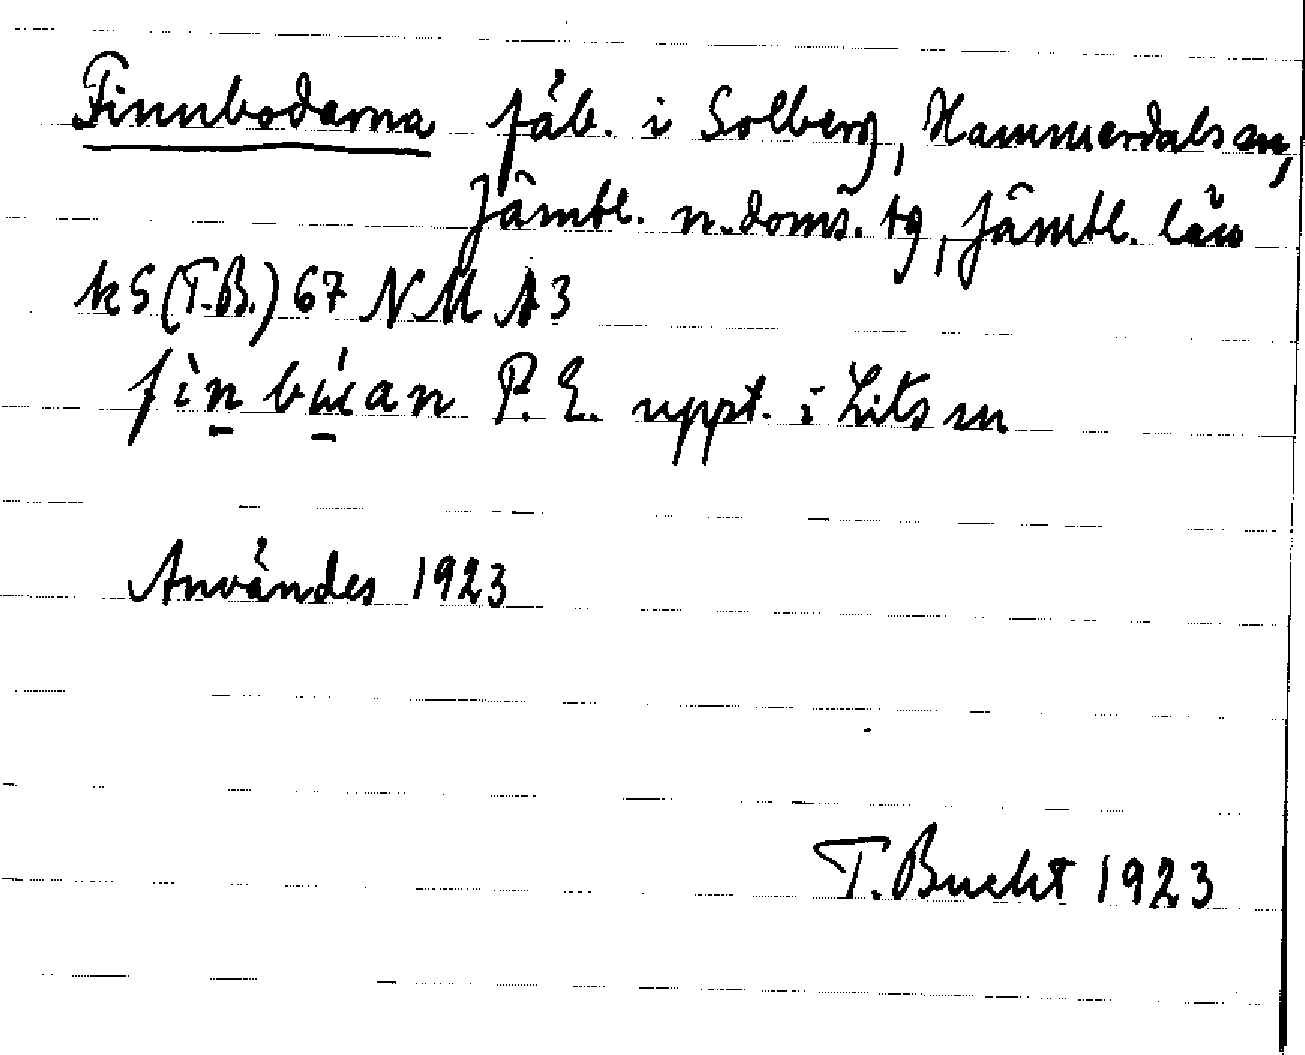 Finnbodarna fäb. i Solberg, Hammerdals sn,
Jämtl. n. doms. tg, Jämtl. län
kS (T.B.) 67 N M A 3
P. E. uppt. i Lits sn
Användes 1923
T. Bucht 1923